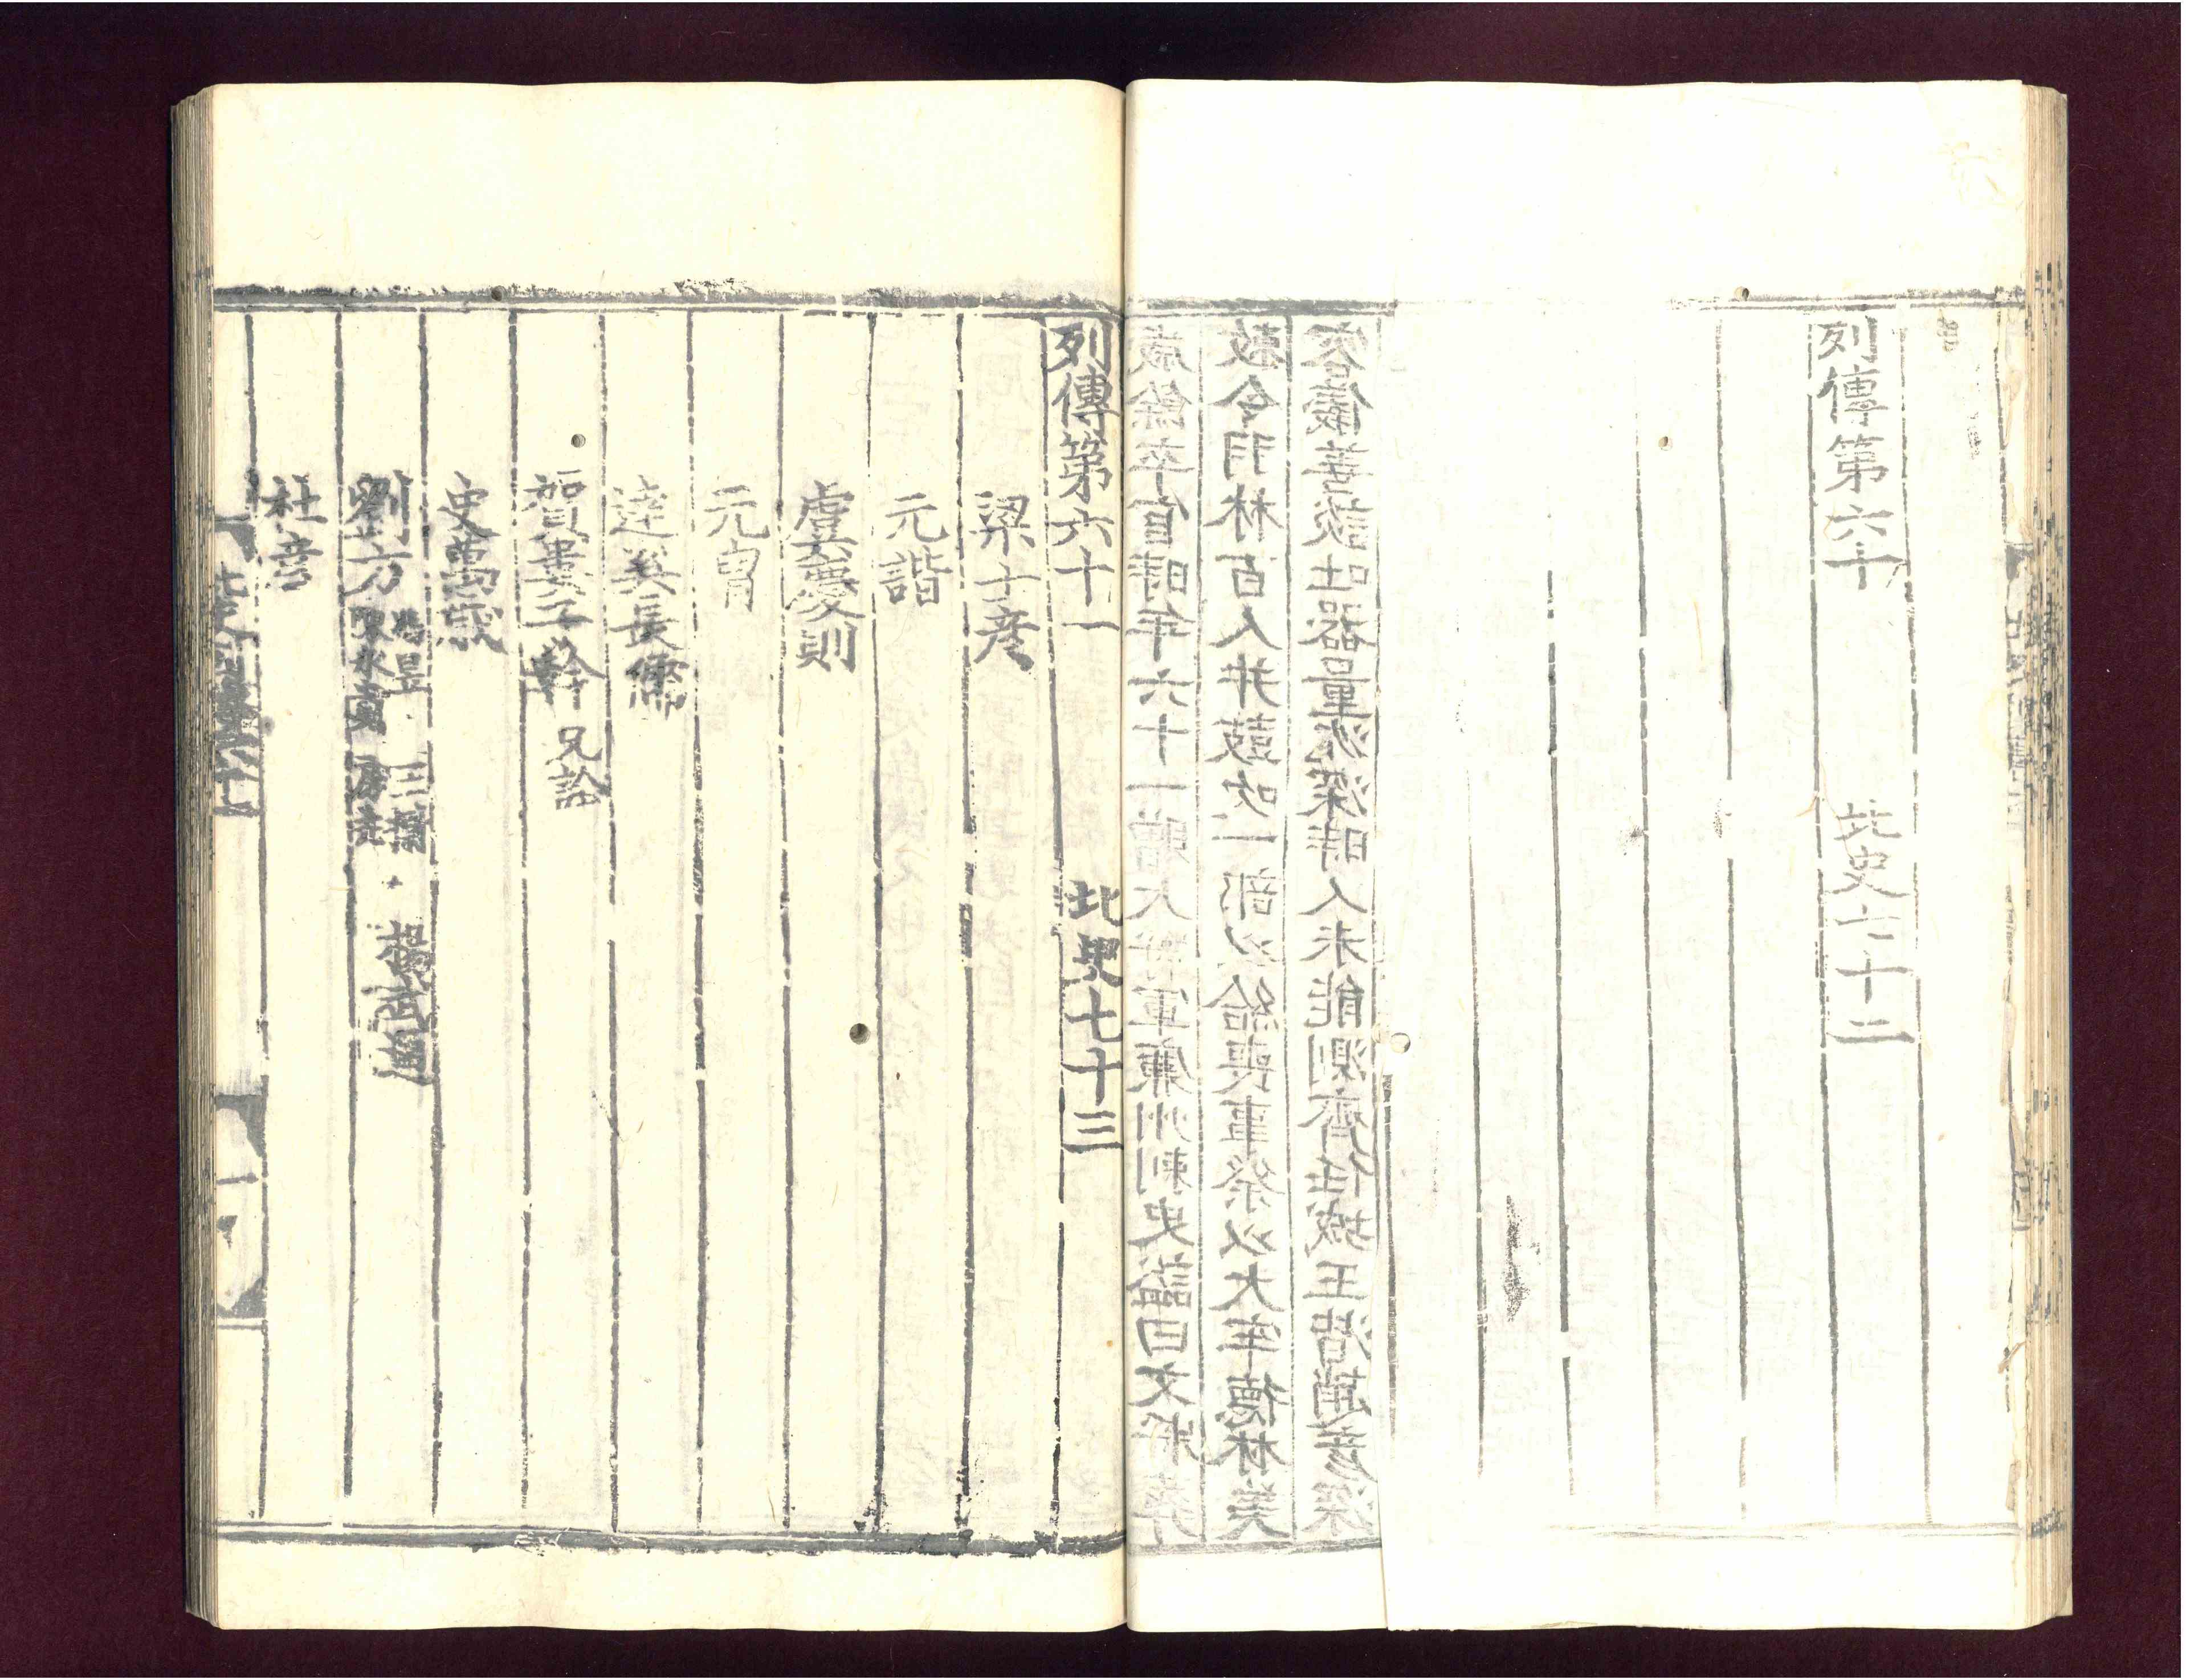 列傳第六十　北史七十二
歲餘卒官時年六十一贈大將軍廉州刺史謚曰文將葬
敕令羽林百人并鼓吹一部以給喪事祭以大牢德林美
容儀善談吐器量沈深時人未能測齊任城王湝趙彥深
列傳第六十一　北史七十三
梁士彥
元諧
虞慶則
元冑
達奚長儒
賀婁子幹　兄詮
史萬歲
劉方　馮昱　王檦　陳永貴　房兆　楊武通
杜彥
北史列傳六十一　一